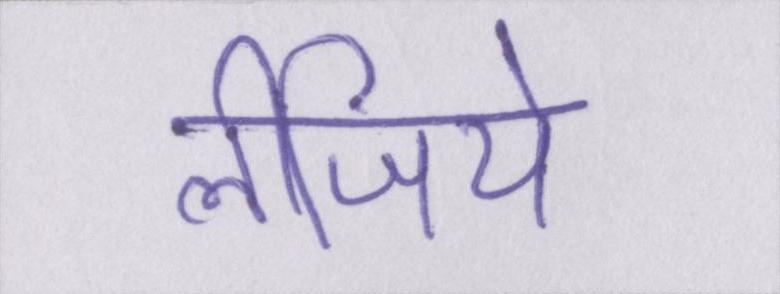 लीजिये